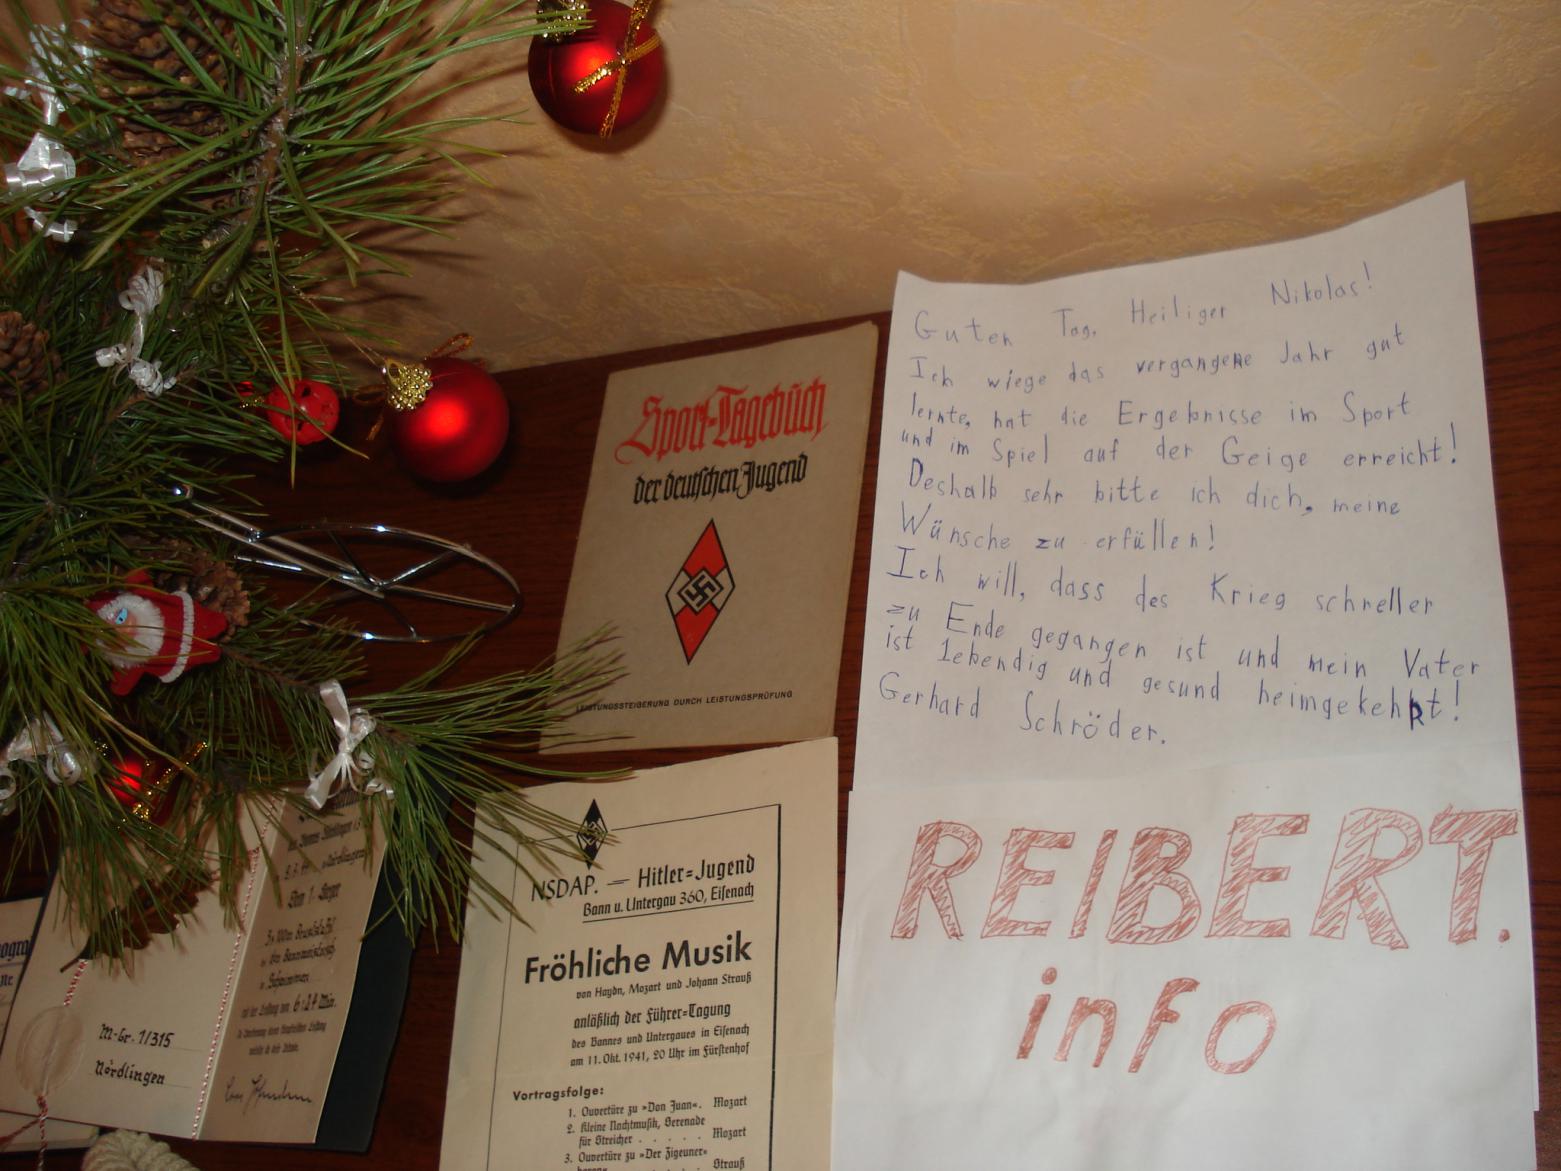 Guten Tag, Heiliger Nikolas!
Ich wiege das vergangene Jahr gut
lernte, hat die Ergebnisse im Sport
und im Spiel auf der Geige erreicht!
Deshalb sehr bitte ich dich, meine
Wünsche zu erfüllen!
Ich will, dass des Krieg schneller
zu Ende gegangen ist und mein Vater
ist lebendig und gesund heimgekehrt!
Gerhard Schröder.
REIBERT.
info
Sport-Tagebuch
der deutschen Jugend
LEISTUNGSSTEIGERUNG DURCH LEISTUNGSPRÜFUNG
NSDAP. — Hitler=Jugend
Bann u. Untergau 360, Eisenach
Fröhliche Musik
von Haydn, Mozart und Johann Strauß
anläßlich der Führer=Tagung
des Bannes und Untergaues in Eisenach
am 11. Okt. 1941, 20 Uhr im Fürstenhof
Vortragsfolge:
1. Ouvertüre zu »Don Juan«. Mozart
2. Kleine Nachtmusik, Serenade
für Streicher . . . . . Mozart
3. Ouvertüre zu »Der Zigeuner=
Strauß
M-Gr. 1/315
Nördlingen